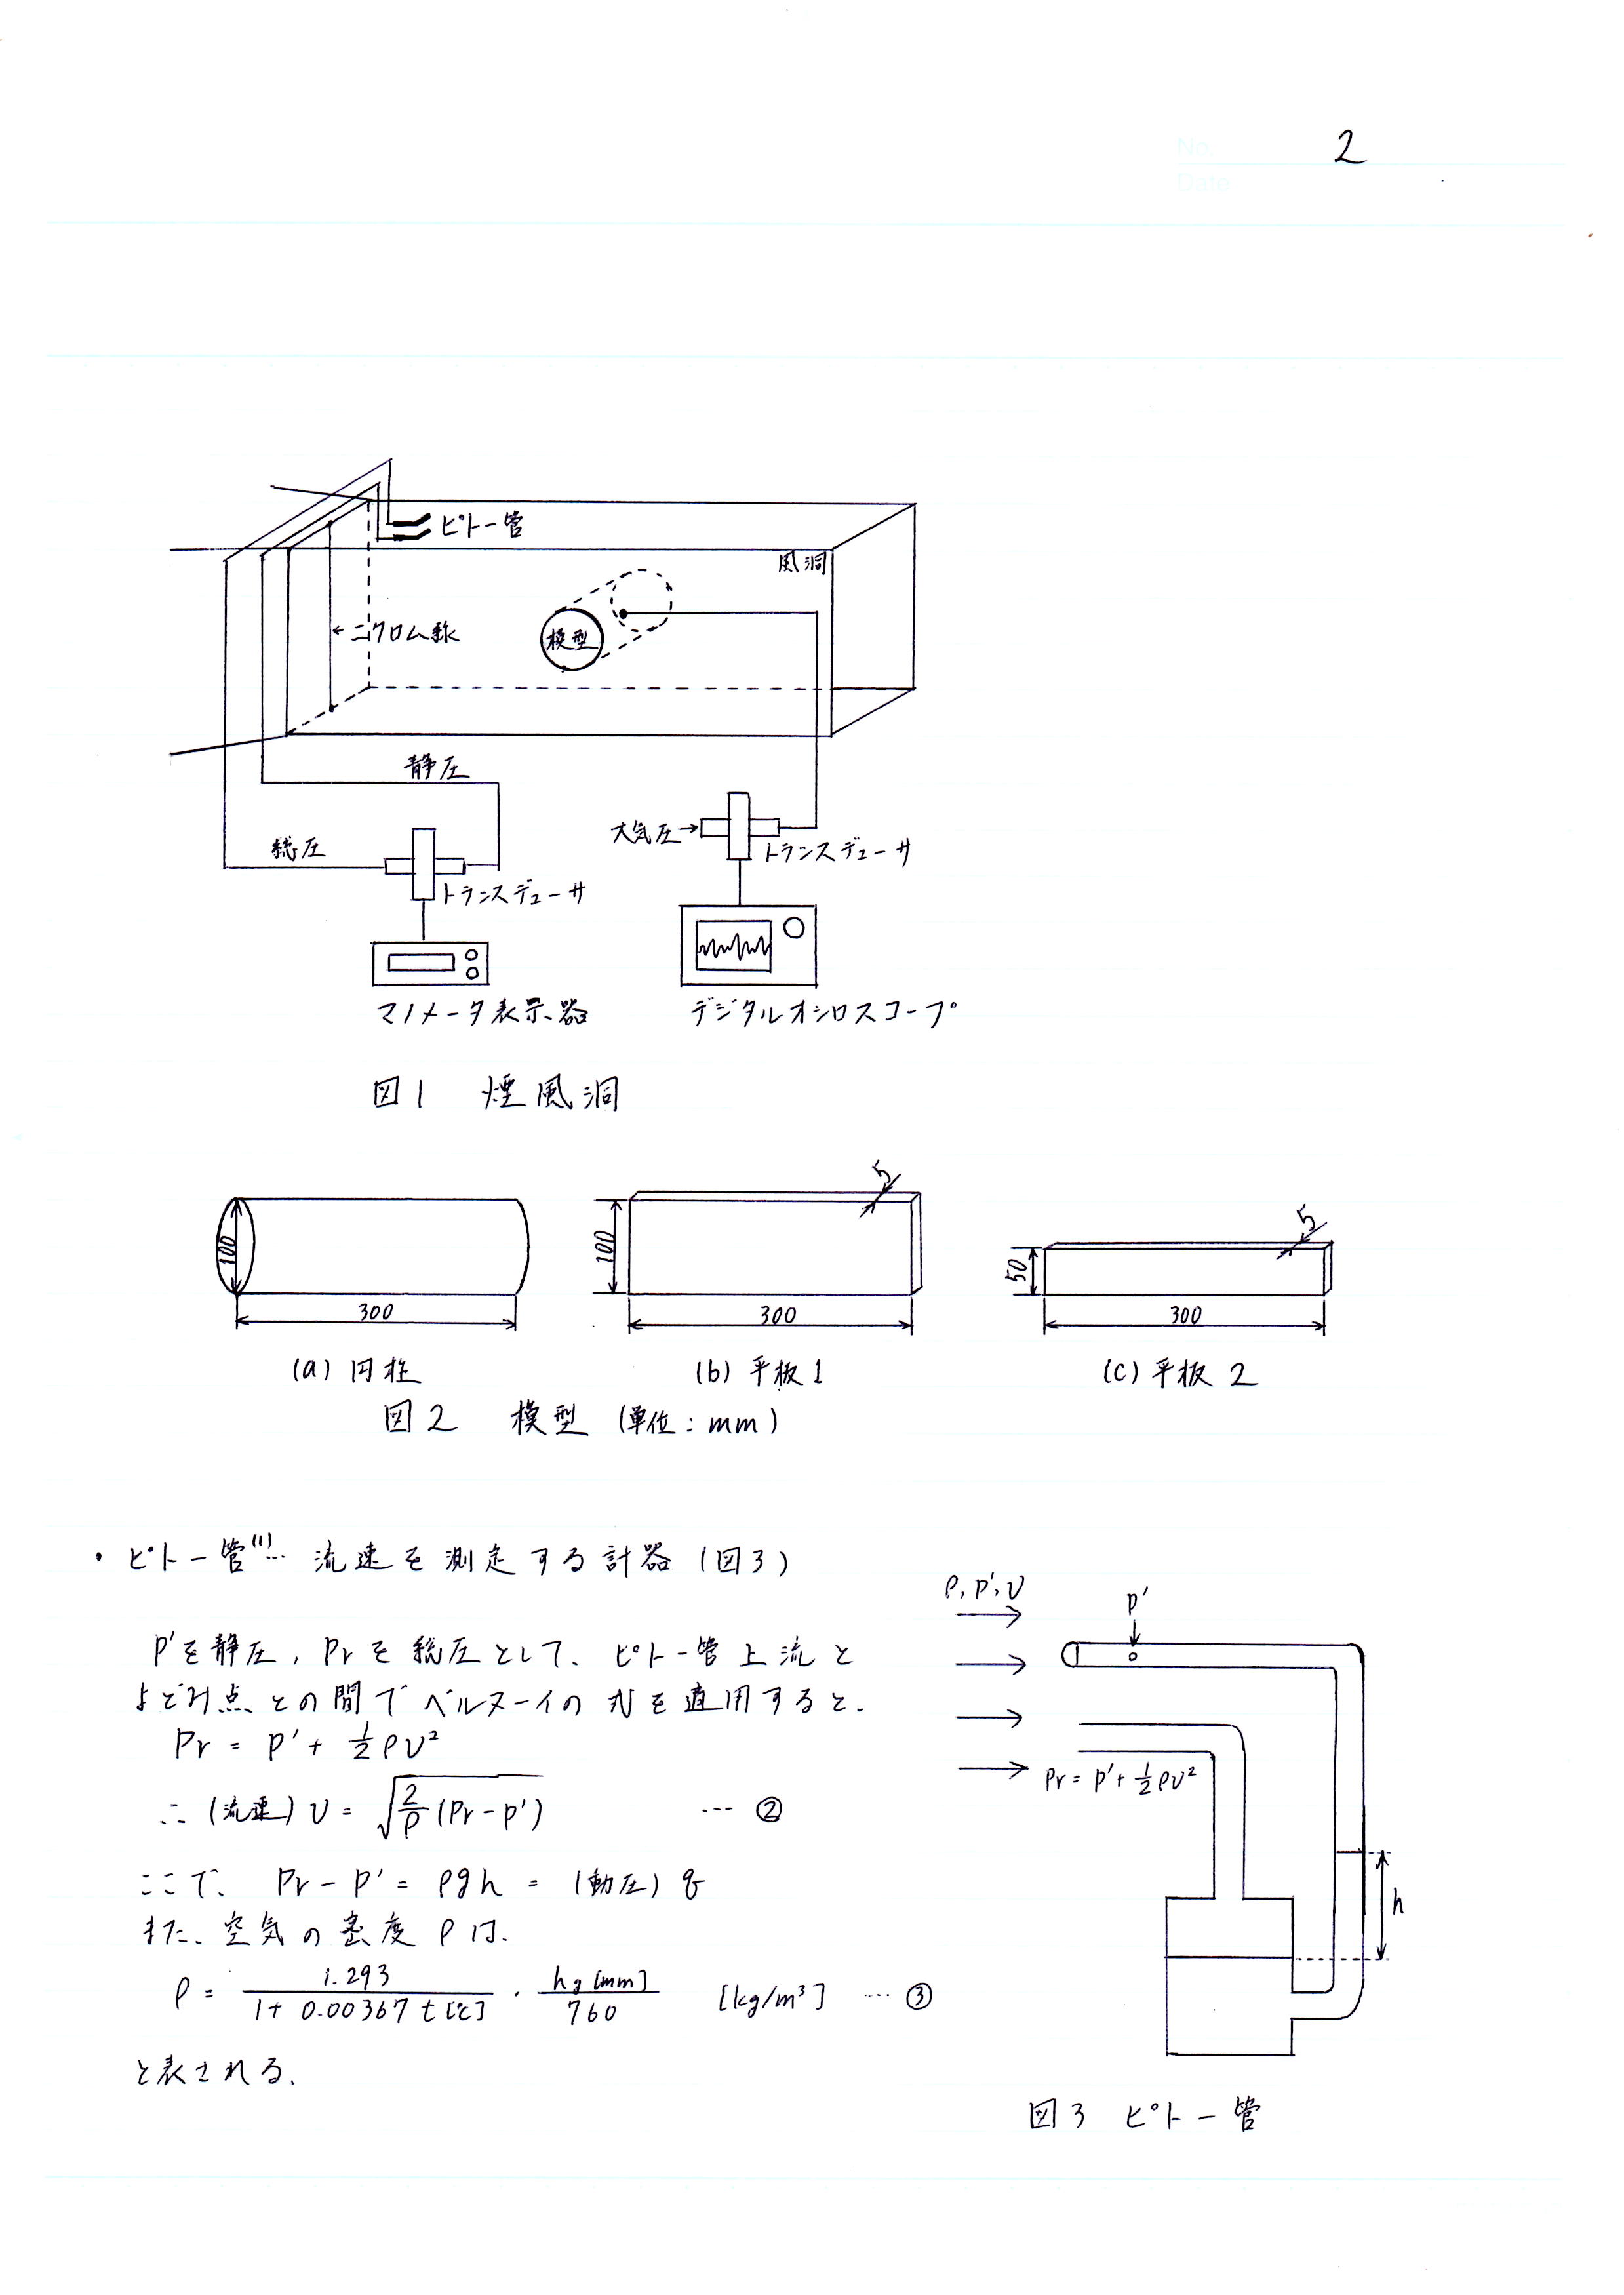 No. 2
Date
ピトー管
風洞
←ニクロム線
模型
静圧
大気圧→
総圧
トランスデューサ
トランスデューサ
マノメータ表示器
デジタルオシロスコープ
図1 煙風洞
100
300
(a) 円柱
5
100
300
(b) 平板1
5
50
300
(c) 平板2
図2 模型 (単位:mm)
・ピトー管(1)… 流速を測定する計器 (図3)
P'を静圧, Prを総圧として、ピトー管上流と
よどみ点との間でベルヌーイの式を適用すると、
Pr = P' + 1/2 ρv²
∴ (流速) v = √(2/ρ (Pr − P')) … ②
ここで、 Pr − P' = ρgh = (動圧) q
また、空気の密度ρは、
ρ = 1.293 / (1 + 0.00367 t[℃]) ・ hg[mm] / 760 [kg/m³] … ③
と表される。
ρ, P', v
P'
Pr = P' + 1/2 ρv²
h
図3 ピトー管